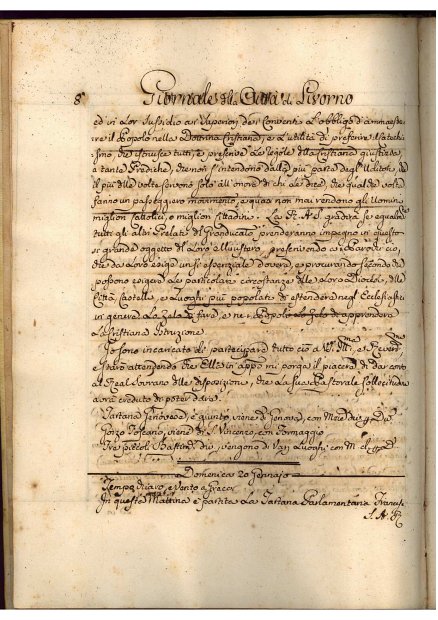 8 Giornale della Città di Livorno
ed in Lor Sussidio ai Superiori dei Conventi l'obbligo d'ammaestra-
re il Popolo nella Dottrina Cristiana, e l'utilità di preferire il Catechi-
smo, che istruisce tutti, e presenta le regole della Cristiana giustizia,
a tante Prediche, che non s'intendono dalla più parte degl'Uditori, ed
il più delle volte servono solo all'onore di chi le dice, che qualche volta
fanno un passeggiero movimento, e quasi non mai rendono gli Uomini
migliori Cattolici, o migliori Cittadini. La R. A. S. gradirà se egualm
tutti gli altri Prelati del Granducato prenderanno impegno in questo
sì grande oggetto del Loro Ministero, prescrivendo ai Parochi ciò,
che da Loro esige un sì essenziale dovere, e procurando secondo che
possono esigere le particolari circostanze delle Loro Diocesi, delle
Città, Castella, e Luoghi più popolati di estendere negl'Ecclesiastici
in genere lo Zelo di fare, e nei Popolo lo Zelo di apprendere
la Cristiana Istruzione.
Io sono incaricato di partecipare tutto ciò a V. S. Ill.ma, e Rever.ma
e starò attendendo che Ella in appo mi porga il piacere di dar conto
al Real Sovrano delle disposizioni, che la sua Pastorale sollecitudine
avrà creduto di poter dare.
Tartana Genovese, è giunto, viene di Genova, con Mele, due
Gonzo Toscano, viene da S. Vincenzo, con Formaggio
Tre piccoli Bastim due, vengono di Vari Luoghi con
Domenica 20 Gennaio
Tempo Chiaro, e Vento a Greco.
In questa Mattina è partita la Tartana Parlamentaria Francese
S. A. R